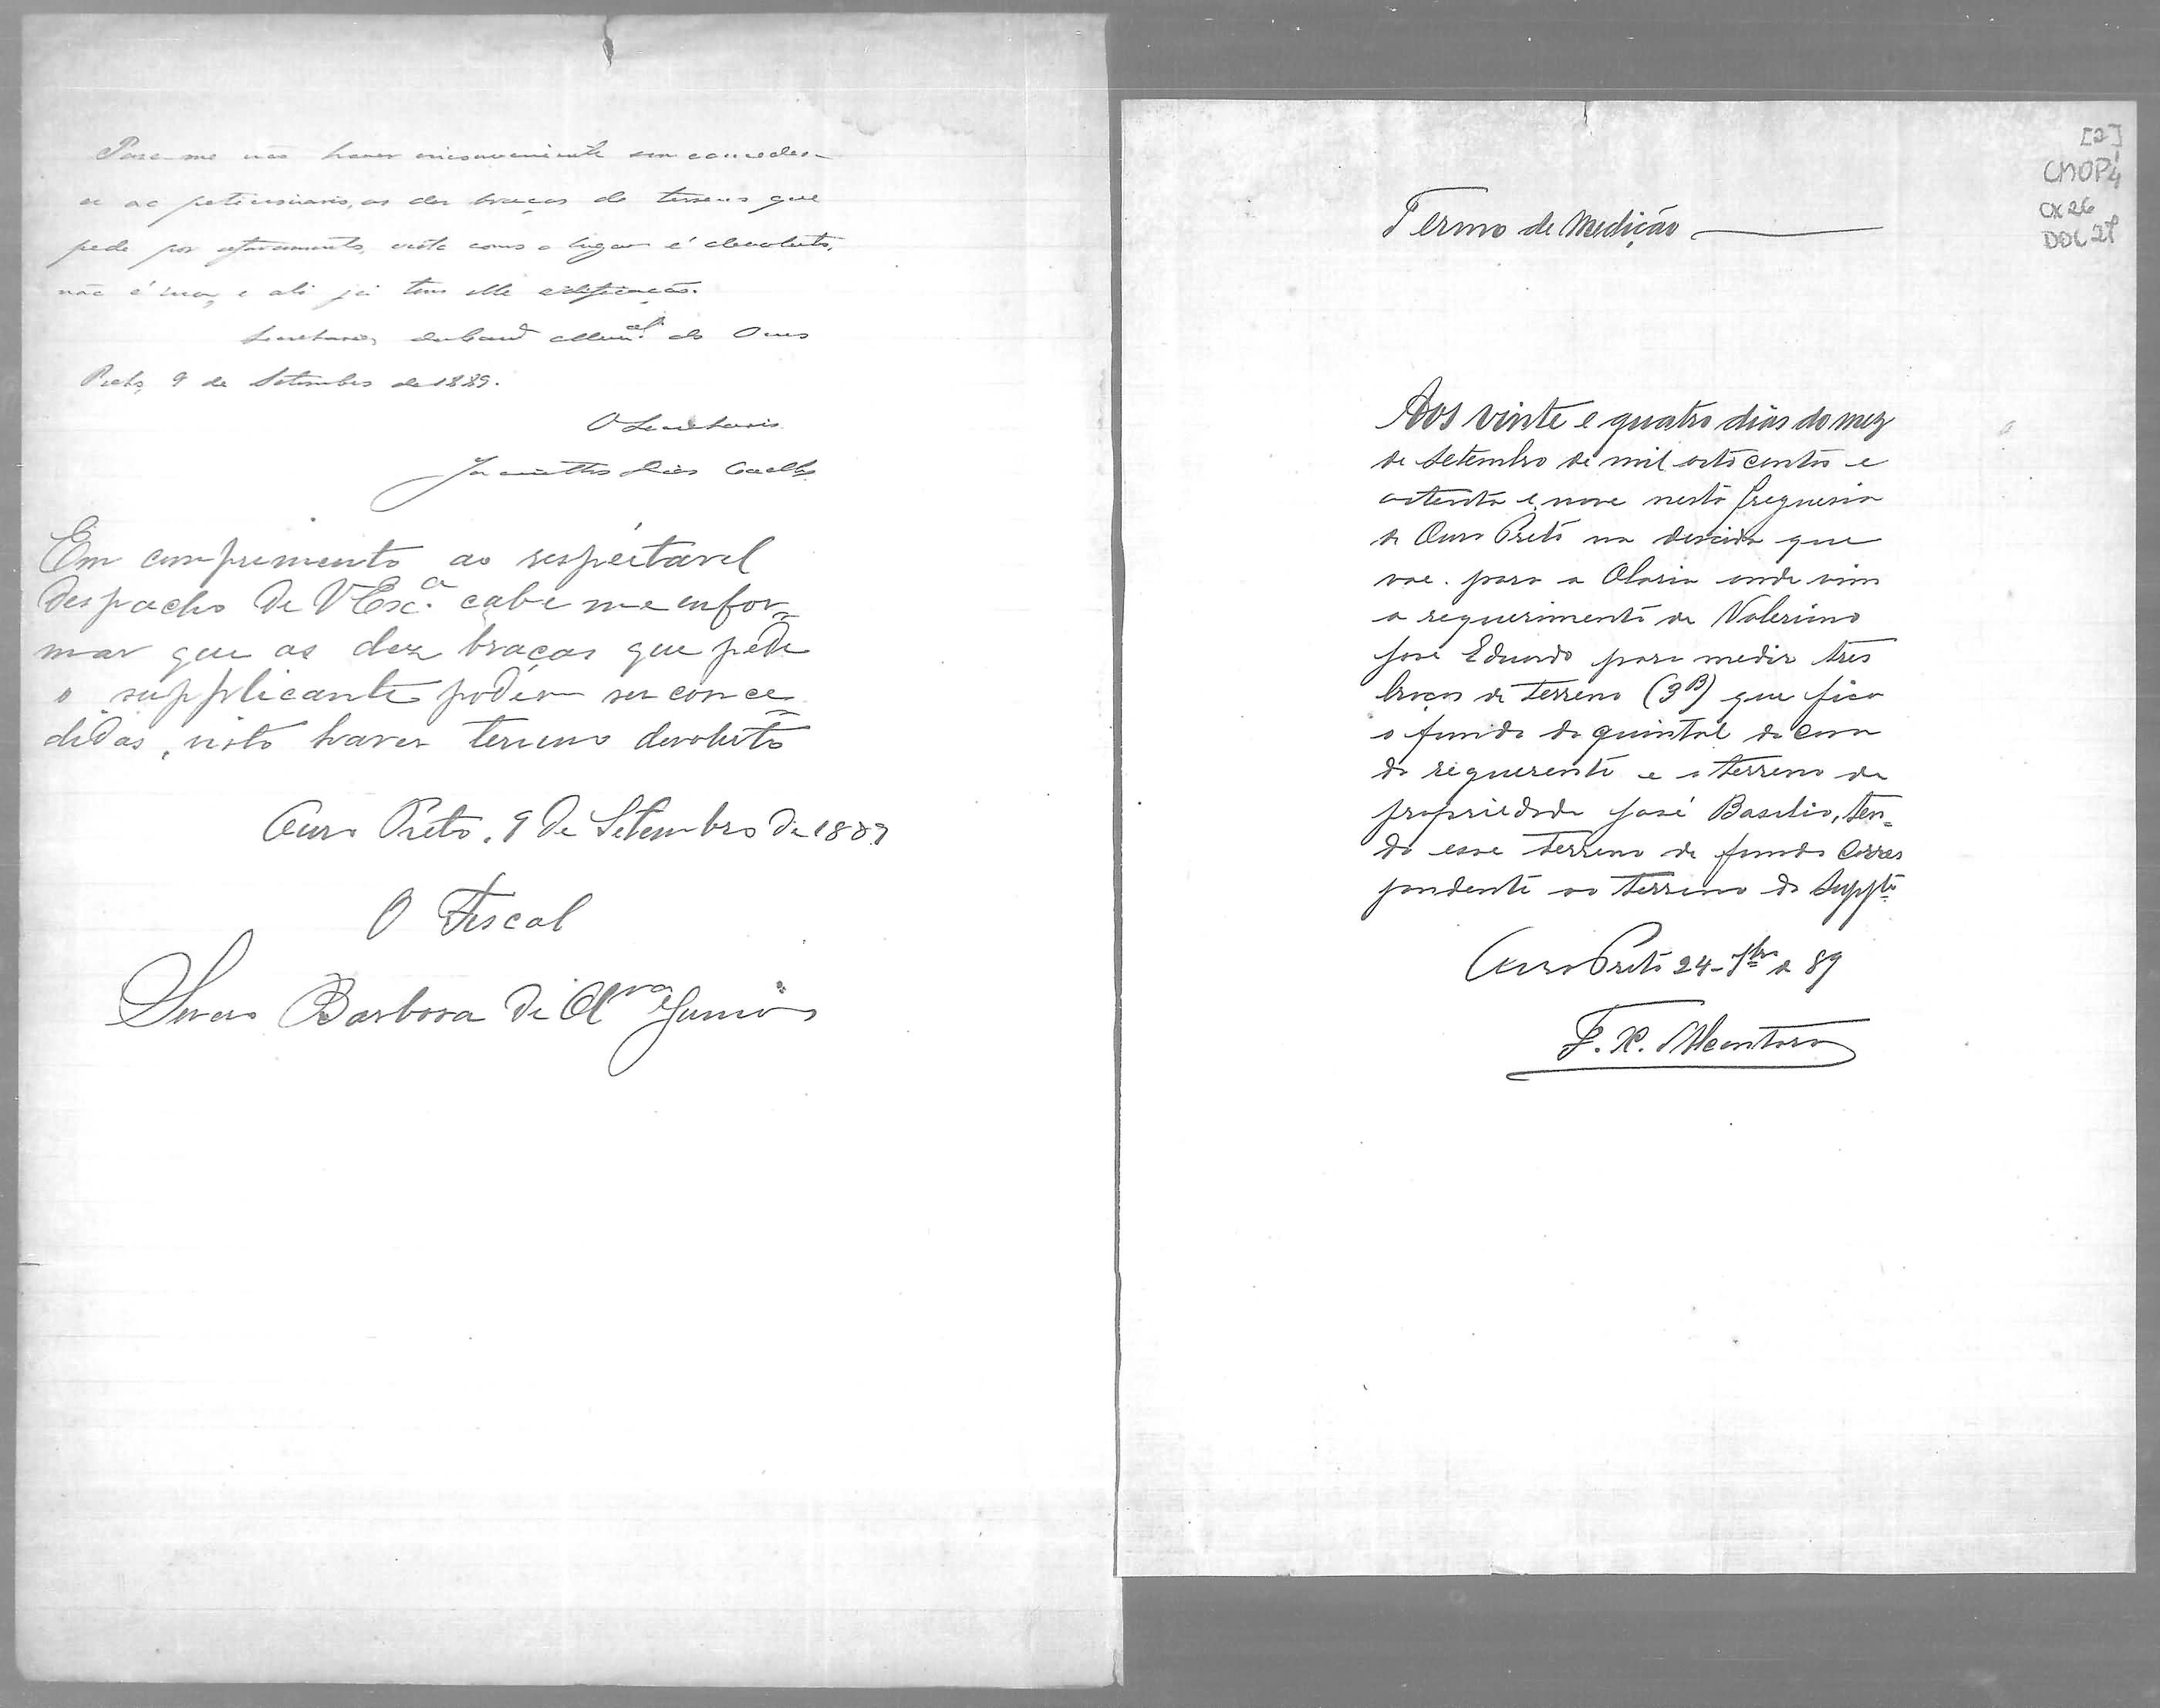 Parece-me não haver inconveniente em conceder-
se ao peticionario, as dez braças de terreno que
pede por aforamento, visto como o lugar é devoluto,
não é rua, e ali já tem elle edificação.
Secretaria da Camª Munal de Ouro
Preto, 9 de Setembro de 1889.
O Secretario
Jacintho Dias Coelho
Em comprimento ao respeitavel
despacho de V Exca. cabe me enfor=
mar que as dez braças que pede
o supplicante podem ser conce=
didas, visto haver terreno devoluto
Ouro Preto, 9 de Setembro de 1889
O Fiscal
Barbosa de Olvra Junior
[2]
CMOP
CX 26
DOC 21
Termo de Medição
Aos vinte e quatro dias do mez
de Setembro de mil oito centos e
oitenta e nove nesta freguesia
de Ouro Preto na descida que
vae para a Olaria onde vim
a requerimento de Valeriano
José Eduardo para medir tres
braças de terreno (3B) que fica
o fundo do quintal da casa
do requerente e o terreno de
propriedade José Basilio, ten=
do esse terreno de fundo corres
pondente ao terreno do Suppte
Ouro Preto 24-7bro de 89
F. X. Alcantara